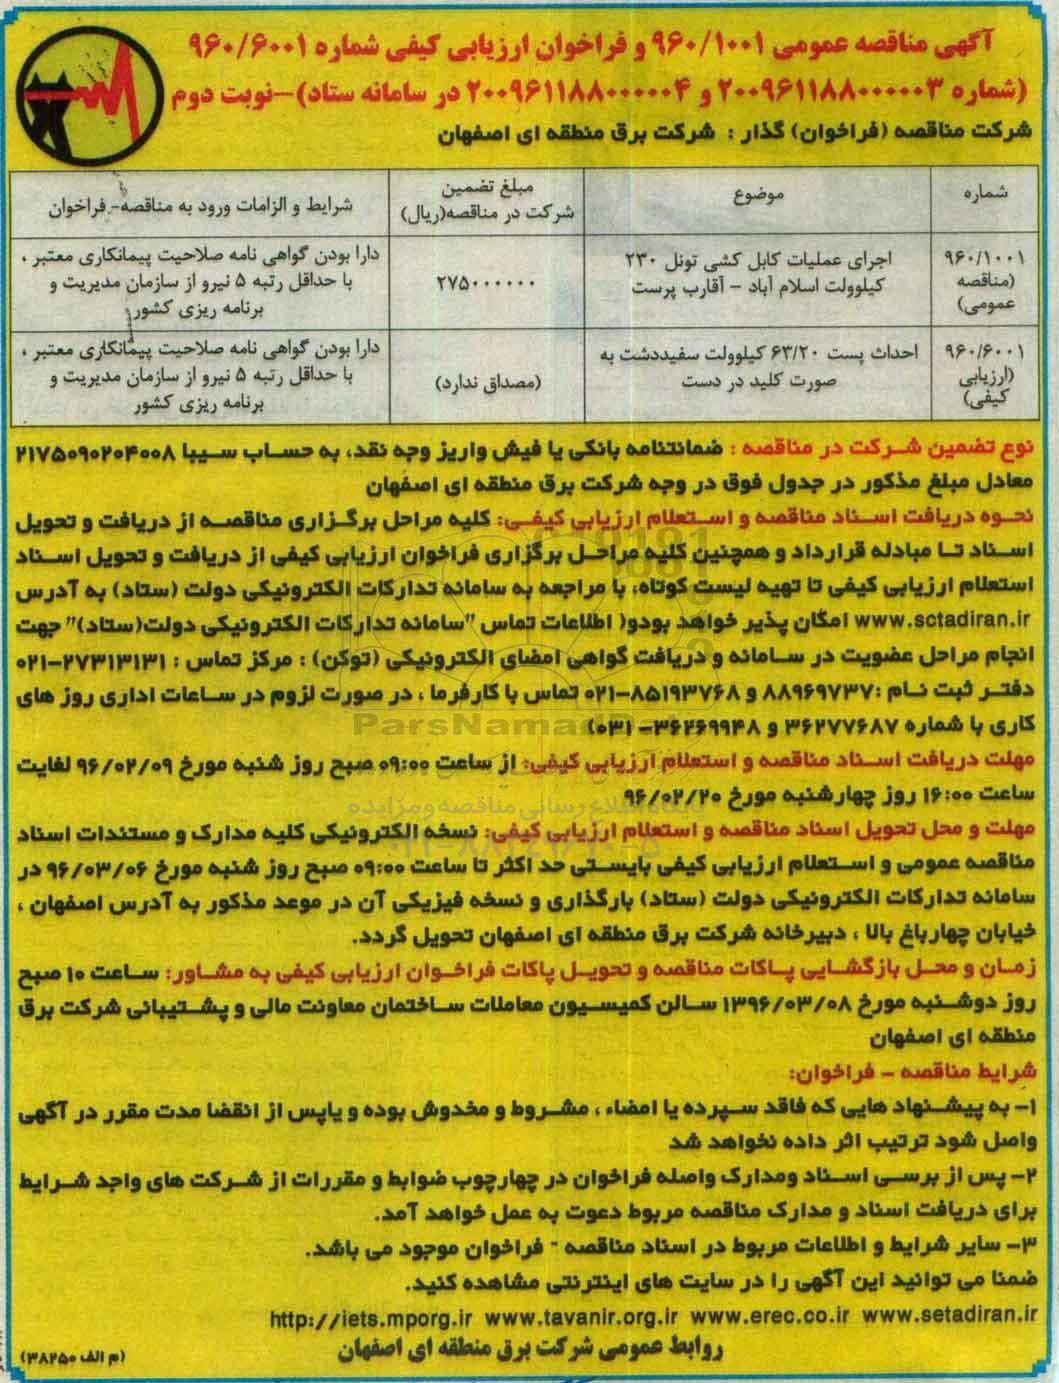 آگهی مناقصه عمومی ۹۶۰/۱۰۰۱ و فراخوان ارزیابی کیفی شماره ۹۶۰/۶۰۰۱
(شماره ۲۰۰۹۶۱۱۸۸۰۰۰۰۰۳ و ۲۰۰۹۶۱۱۸۸۰۰۰۰۰۴ در سامانه ستاد)-نوبت دوم
شرکت مناقصه (فراخوان) گذار : شرکت برق منطقه ای اصفهان
شماره
موضوع
مبلغ تضمین
شرکت در مناقصه(ریال)
شرایط و الزامات ورود به مناقصه- فراخوان
۹۶۰/۱۰۰۱
(مناقصه
عمومی)
اجرای عملیات کابل کشی تونل ۲۳۰
کیلوولت اسلام آباد - آقارب پرست
۲۷۵۰۰۰۰۰۰
دارا بودن گواهی نامه صلاحیت پیمانکاری معتبر ،
با حداقل رتبه ۵ نیرو از سازمان مدیریت و
برنامه ریزی کشور
۹۶۰/۶۰۰۱
(ارزیابی
کیفی)
احداث پست ۶۳/۲۰ کیلوولت سفیددشت به
صورت کلید در دست
(مصداق ندارد)
دارا بودن گواهی نامه صلاحیت پیمانکاری معتبر ،
با حداقل رتبه ۵ نیرو از سازمان مدیریت و
برنامه ریزی کشور
نوع تضمین شرکت در مناقصه : ضمانتنامه بانکی یا فیش واریز وجه نقد، به حساب سیبا ۲۱۷۵۰۹۰۲۰۴۰۰۸
معادل مبلغ مذکور در جدول فوق در وجه شرکت برق منطقه ای اصفهان
نحوه دریافت اسناد مناقصه و استعلام ارزیابی کیفی: کلیه مراحل برگزاری مناقصه از دریافت و تحویل
اسناد تا مبادله قرارداد و همچنین کلیه مراحل برگزاری فراخوان ارزیابی کیفی از دریافت و تحویل اسناد
استعلام ارزیابی کیفی تا تهیه لیست کوتاه، با مراجعه به سامانه تدارکات الکترونیکی دولت (ستاد) به آدرس
www.sctadiran.ir امکان پذیر خواهد بودو( اطلاعات تماس "سامانه تدارکات الکترونیکی دولت(ستاد)" جهت
انجام مراحل عضویت در سامانه و دریافت گواهی امضای الکترونیکی (توکن) : مرکز تماس : ۲۷۳۱۳۱۳۱-۰۲۱
دفتر ثبت نام :۸۸۹۶۹۷۳۷ و ۸۵۱۹۳۷۶۸-۰۲۱ تماس با کارفرما ، در صورت لزوم در ساعات اداری روز های
کاری با شماره ۳۶۲۷۷۶۸۷ و ۳۶۲۶۹۹۴۸-۰۳۱)
مهلت دریافت اسناد مناقصه و استعلام ارزیابی کیفی: از ساعت ۰۹:۰۰ صبح روز شنبه مورخ ۹۶/۰۲/۰۹ لغایت
ساعت ۱۶:۰۰ روز چهارشنبه مورخ ۹۶/۰۲/۲۰
مهلت و محل تحویل اسناد مناقصه و استعلام ارزیابی کیفی: نسخه الکترونیکی کلیه مدارک و مستندات اسناد
مناقصه عمومی و استعلام ارزیابی کیفی بایستی حد اکثر تا ساعت ۰۹:۰۰ صبح روز شنبه مورخ ۹۶/۰۳/۰۶ در
سامانه تدارکات الکترونیکی دولت (ستاد) بارگذاری و نسخه فیزیکی آن در موعد مذکور به آدرس اصفهان ،
خیابان چهارباغ بالا ، دبیرخانه شرکت برق منطقه ای اصفهان تحویل گردد.
زمان و محل بازگشایی پاکات مناقصه و تحویل پاکات فراخوان ارزیابی کیفی به مشاور: ساعت ۱۰ صبح
روز دوشنبه مورخ ۱۳۹۶/۰۳/۰۸ سالن کمیسیون معاملات ساختمان معاونت مالی و پشتیبانی شرکت برق
منطقه ای اصفهان
شرایط مناقصه - فراخوان:
۱- به پیشنهاد هایی که فاقد سپرده یا امضاء ، مشروط و مخدوش بوده و یاپس از انقضا مدت مقرر در آگهی
واصل شود ترتیب اثر داده نخواهد شد
۲- پس از برسی اسناد ومدارک واصله فراخوان در چهارچوب ضوابط و مقررات از شرکت های واجد شرایط
برای دریافت اسناد و مدارک مناقصه مربوط دعوت به عمل خواهد آمد.
۳- سایر شرایط و اطلاعات مربوط در اسناد مناقصه - فراخوان موجود می باشد.
ضمنا می توانید این آگهی را در سایت های اینترنتی مشاهده کنید.
http://iets.mporg.ir www.tavanir.org.ir www.erec.co.ir www.setadiran.ir
روابط عمومی شرکت برق منطقه ای اصفهان
(م الف ۳۸۲۵۰)